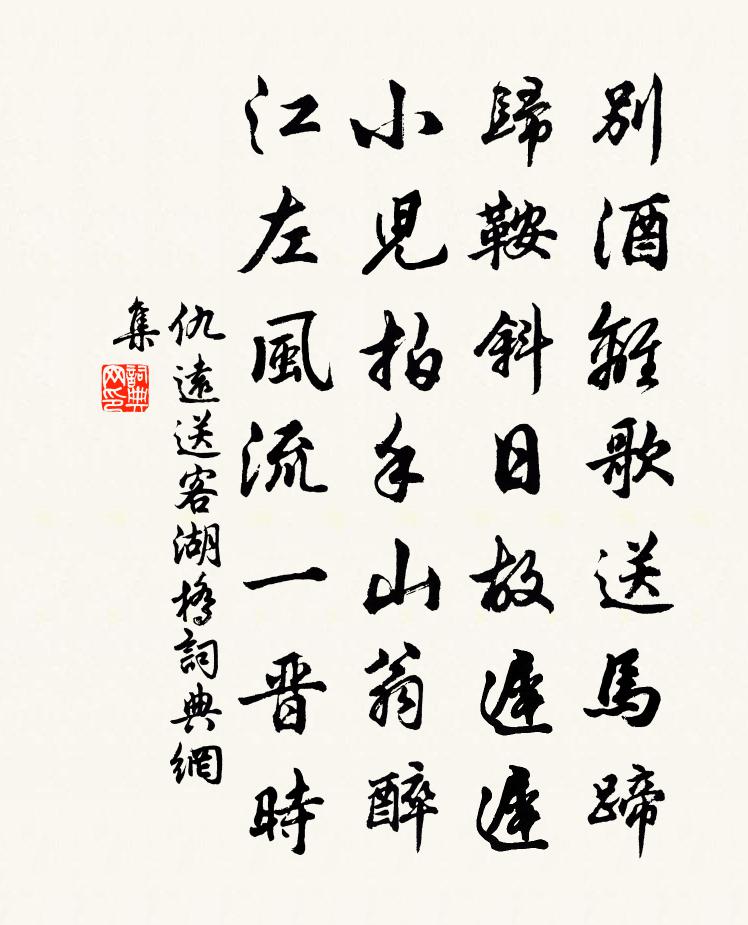 別酒離歌送馬蹄
歸鞍斜日故遲遲
小兒拍手山翁醉
江左風流一晉時
仇遠送客湖橋詞典網
集
詞典
网印